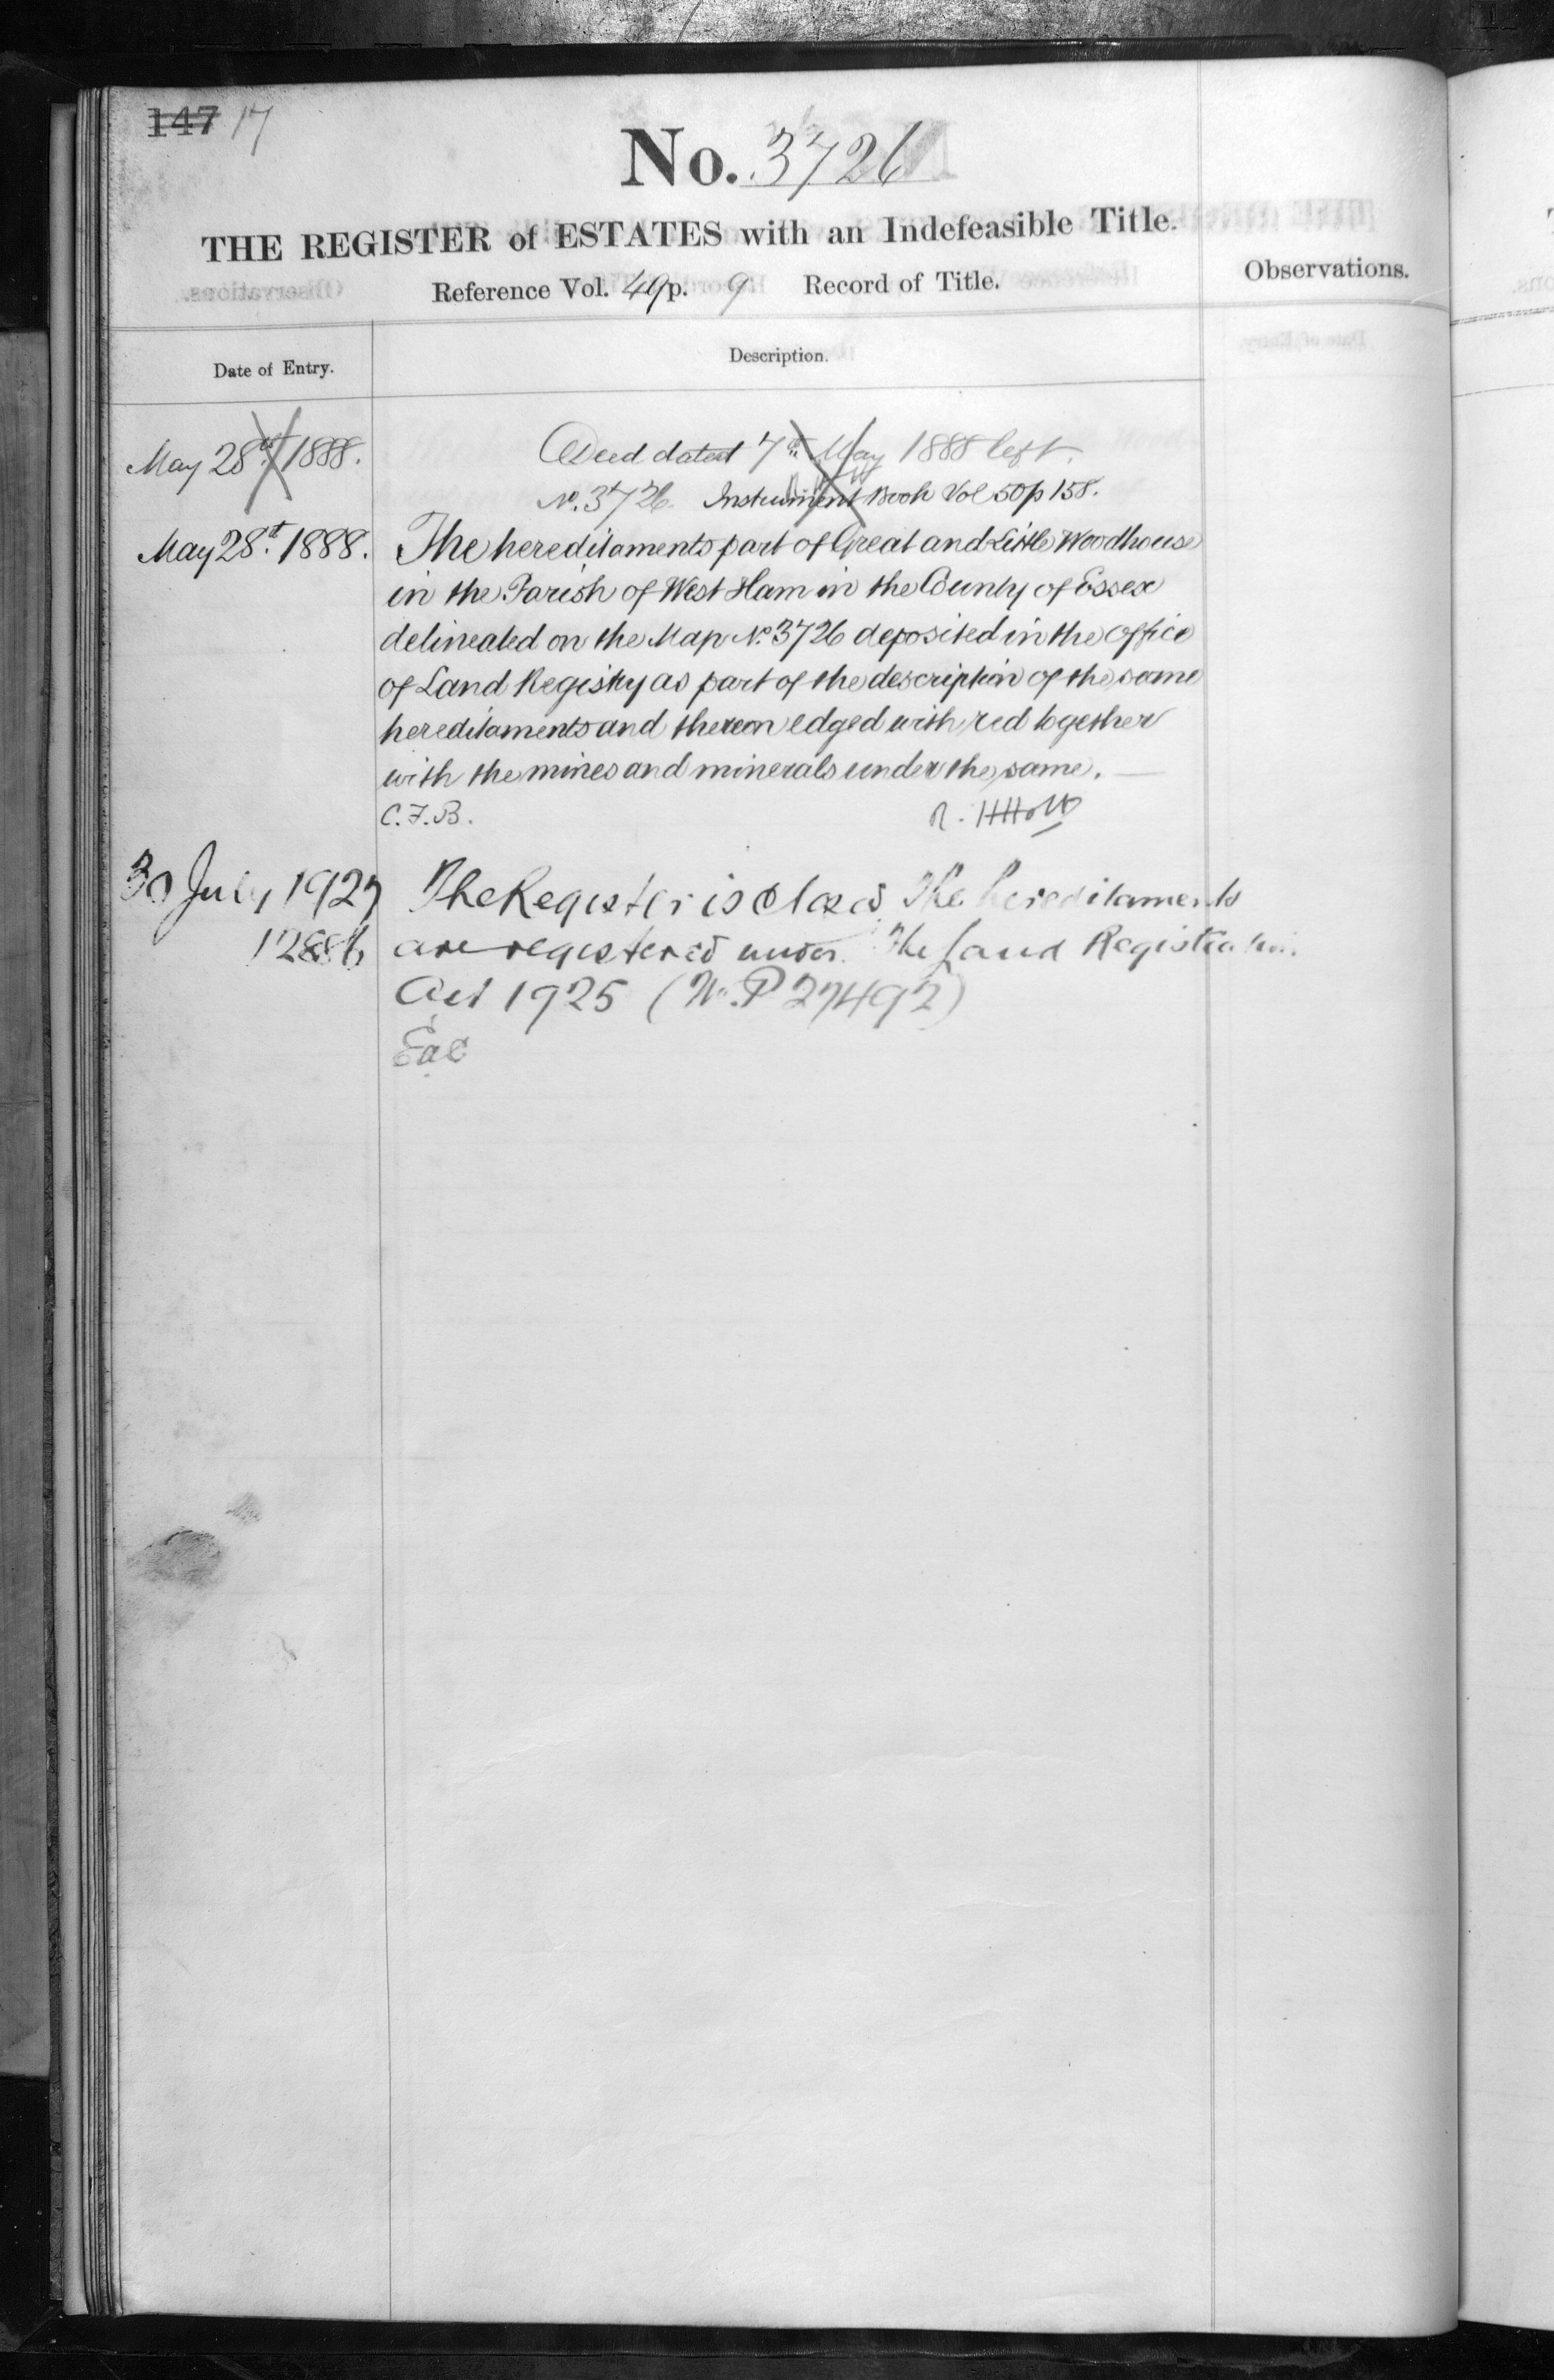 147 17
No. 3726
THE REGISTER of ESTATES with an Indefeasible Title.
Reference Vol. 49 p. 9 Record of Title.
Observations.
Date of Entry.
Description.
May 28th 1888.
Deed dated 7th May 1888 left.
No. 3726 Instrument Book Vol 50 p 158.
May 28th 1888.
The hereditaments part of Great and Little Woodhouse
in the Parish of West Ham in the County of Essex
delineated on the Map No. 3726 deposited in the Office
of Land Registry as part of the description of the same
hereditaments and thereon edged with red together
with the mines and minerals under the same.
C.F.B. R. H Holt
30 July 1927
The Register is closed The hereditaments
12886
are registered under The Land Registration
Act 1925 (No. P 27492)